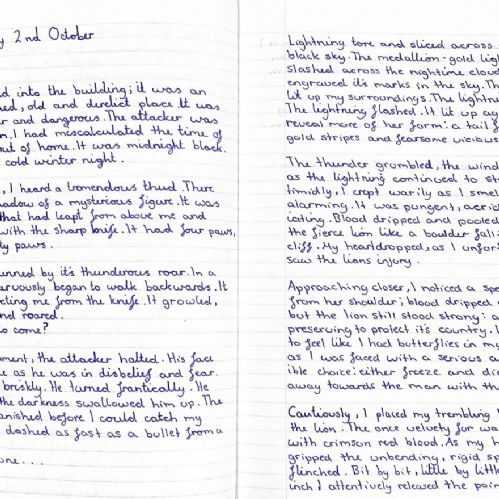 y 2nd October
d into the building; it was an
ed, old and derelict place It was
r and dangerous. The attacker was
n. I had miscalculated the time of
out of home. It was midnight black.
cold winter night.
, I heard a tremendous thud. There
hadow of a mysterious figure. It was
that had leapt from above me and
with the sharp knife. It had four paws,
ty paws.
unned by it's thunderous roar. In a
ervously began to walk backwards. It
cting me from the knife. It growled,
nd roared.
to come?
ment, the attacker halted. His face
e as he was in disbelief and fear.
briskly. He turned frantically. He
the darkness swallowed him up. The
anished before I could catch my
dashed as fast as a bullet from a
one...
Lightning tore and sliced across
black sky. The medallion-gold lig
slashed across the nightime clou
engraved it's marks in the sky. Th
lit up my surroundings. The lightn
The lightning flashed. It lit up ag
reveal more of her form: a tail f
gold stripes and fearsome vicious
The thunder grumbled, the wind
as the lightning continued to st
timidly, I crept warily as I smel
alarming. It was pungent, acri
icating. Blood dripped and poole
the fierce lion like a boulder fall
cliff. My heart dropped, as I unfor
saw the lions injury.
Approaching closer, I noticed a spe
from her shoulder; blood dripped
but the lion still stood strong: a
preserving to protect it's country. I
to feel like I had butterflies in my
as I was faced with a serious a
ible choice: either freeze and die
away towards the man with th
Cautiously, I placed my trembling
the lion. The once velvety fur wa
with crimson red blood. As my h
gripped the unbending, rigid sp
flinched. Bit by bit, little by littl
inch I attentively released the poin